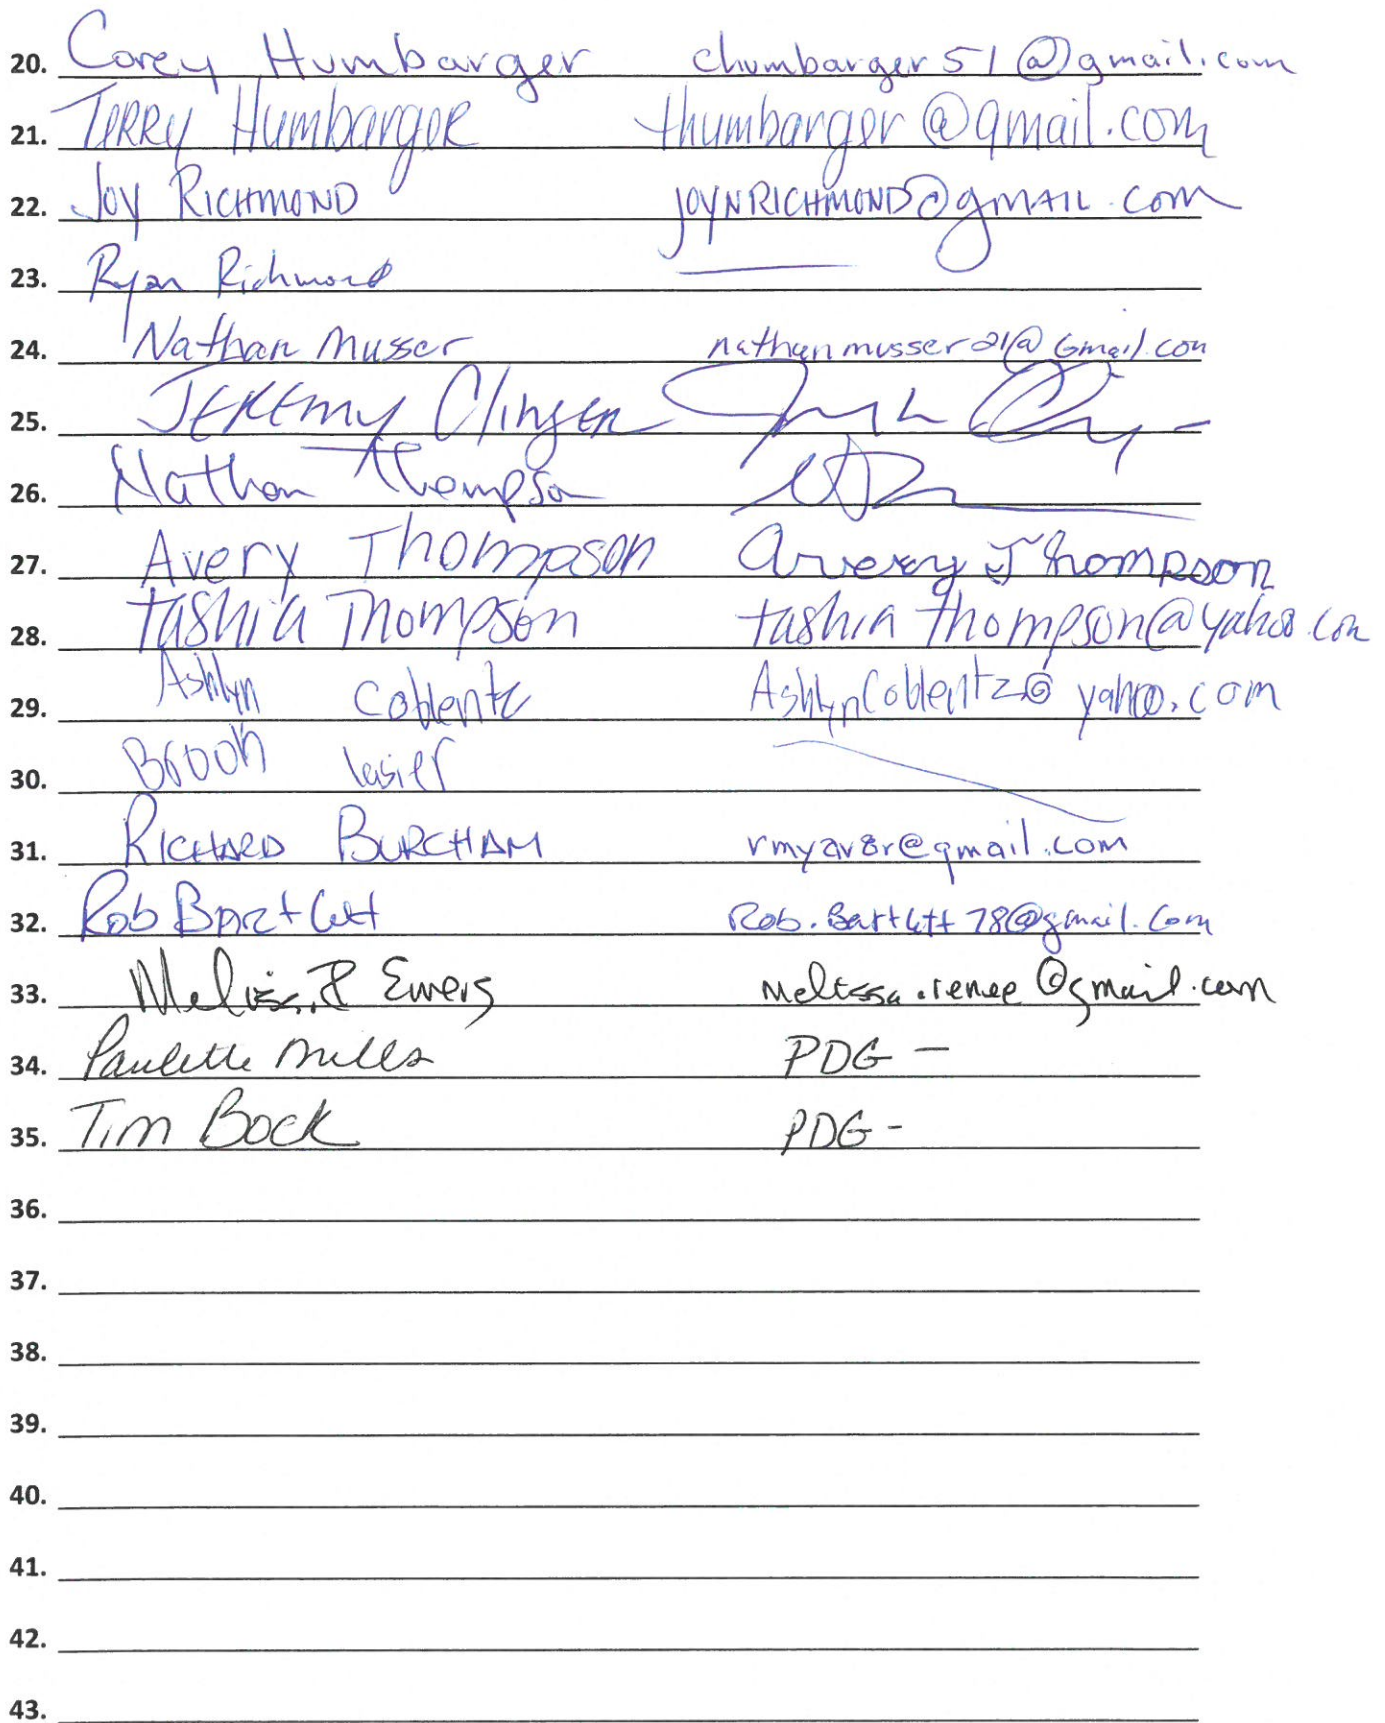 20. Corey Humbarger chumbarger51@gmail.com
21. TERRY HumbargeR thumbarger@gmail.com
22. Joy RICHMOND JOYNRICHMOND@gmAIL.com
23. Ryan Richmond
24. Nathan Musser nathanmusser21@Gmail.com
25. JEREMY Clingen
26. Nathan Thompson
27. Avery Thompson Avery Thompson
28. Tashia Thompson tashia thompson@yahoo.com
29. Ashlyn Coblentz AshlynCoblentz@yahoo.com
30.
31. RICHARD BURCHAM rmyav8r@gmail.com
32. Rob Bartlett Rob.Bartlett78@gmail.com
33. Melissa R Ewers melissa.renee@gmail.com
34. Paulette Mills PDG -
35. Tim Bock PDG -
36.
37.
38.
39.
40.
41.
42.
43.